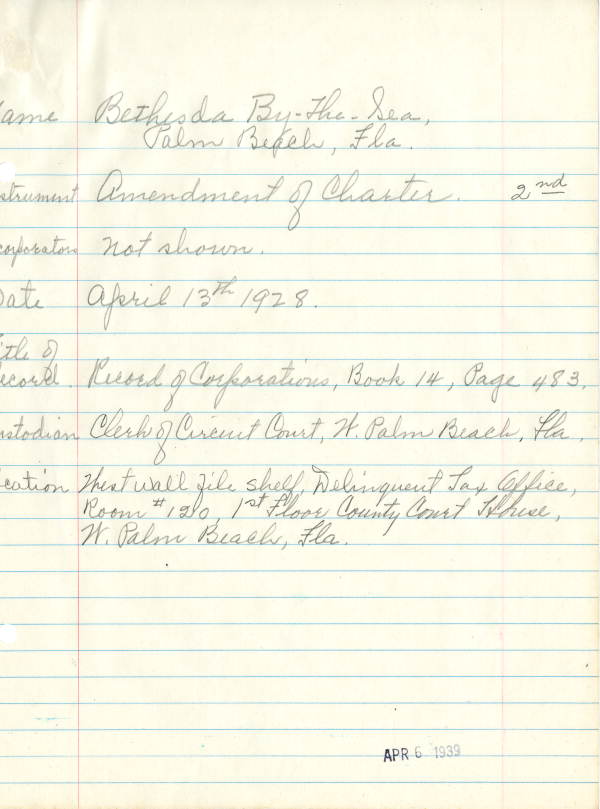 ame Bethesda By-The-Sea,
Palm Beach, Fla.
strument Amendment of Charter. 2nd
corporators not shown.
Date April 13th 1928.
itle of
ecord. Record of Corporations, Book 14, Page 483.
ustodian Clerk of Circuit Court, W. Palm Beach, Fla.
ocation West wall file shelf, Delinquent Tax Office,
Room #120, 1st Floor County Court House,
W. Palm Beach, Fla.
APR 6 1939